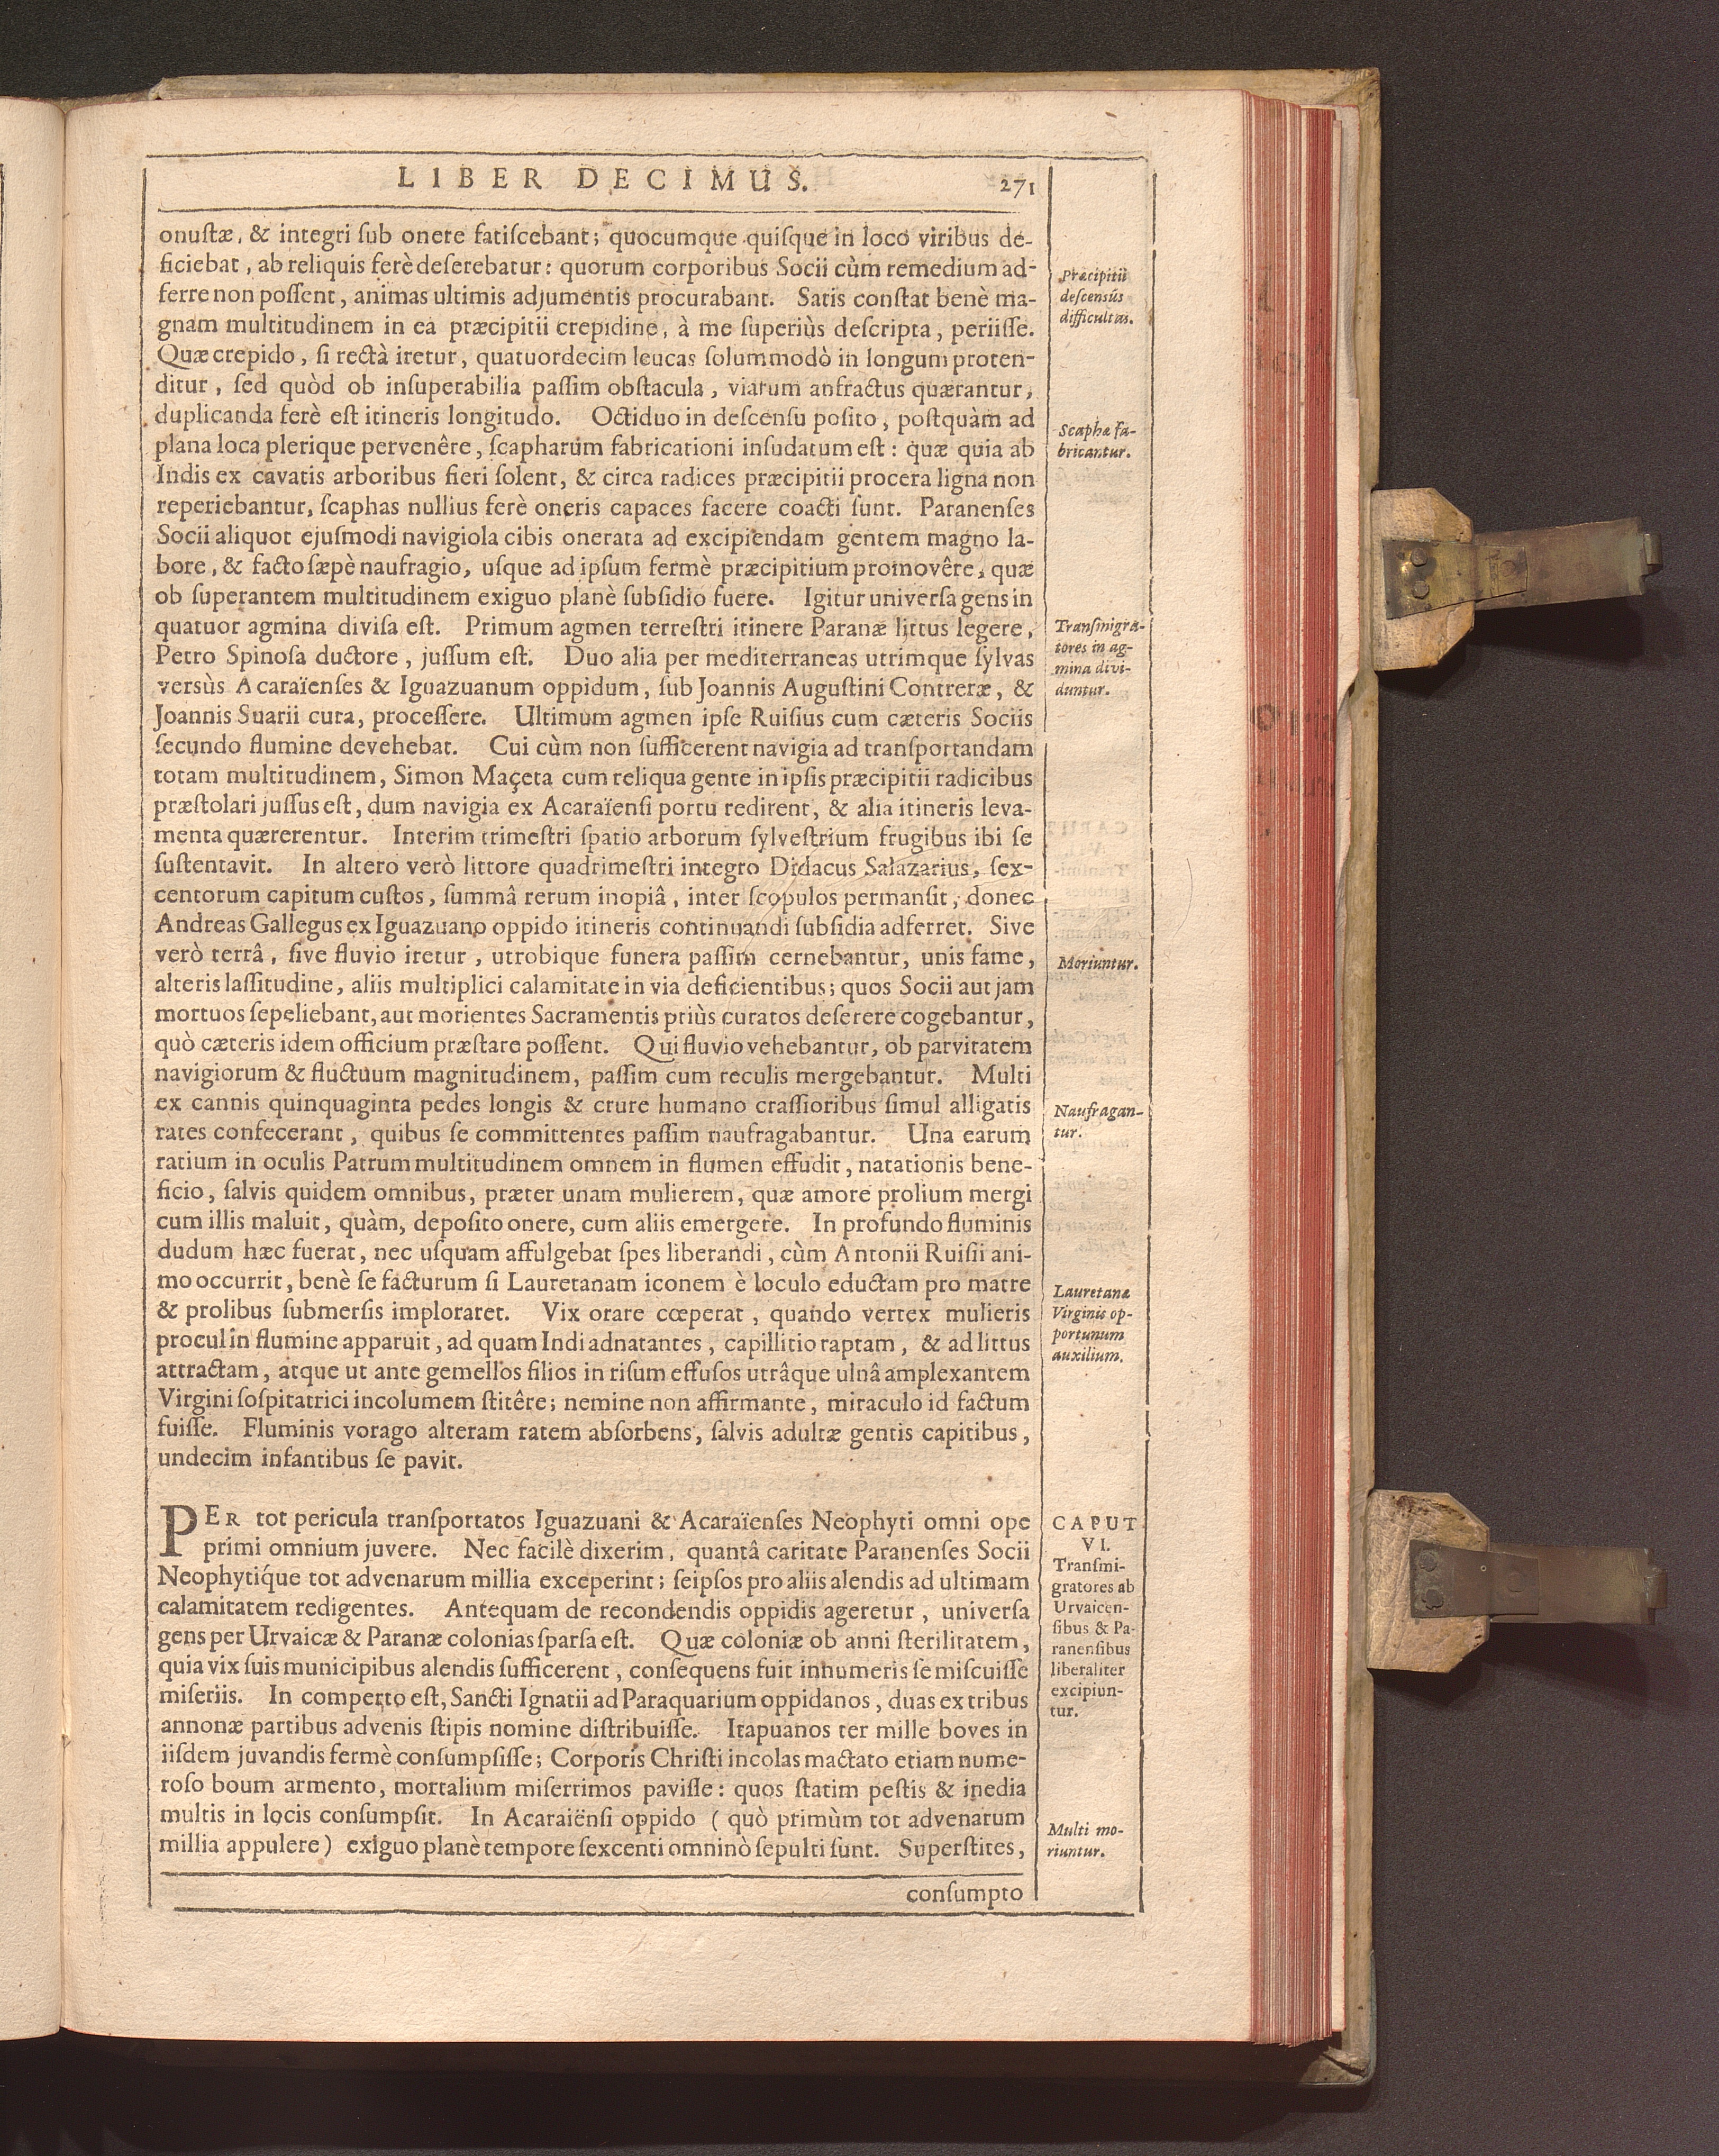 LIBER DECIMUS. 271
onustæ, & integri sub onere fatiscebant; quocumque quisque in loco viribus de-
ficiebat, ab reliquis ferè deserebatur: quorum corporibus Socii cùm remedium ad-
ferre non possent, animas ultimis adjumentis procurabant. Satis constat benè ma-
gnam multitudinem in ea præcipitii crepidine, à me superiùs descripta, periisse.
Quæ crepido, si rectà iretur, quatuordecim leucas solummodò in longum proten-
ditur, sed quòd ob insuperabilia passim obstacula, viarum anfractus quærantur,
duplicanda ferè est itineris longitudo. Octiduo in descensu posito, postquàm ad
plana loca plerique pervenêre, scapharum fabricationi insudatum est: quæ quia ab
Indis ex cavatis arboribus fieri solent, & circa radices præcipitii procera ligna non
reperiebantur, scaphas nullius ferè oneris capaces facere coacti sunt. Paranenses
Socii aliquot ejusmodi navigiola cibis onerata ad excipiendam gentem magno la-
bore, & facto sæpè naufragio, usque ad ipsum fermè præcipitium promovêre, quæ
ob superantem multitudinem exiguo planè subsidio fuere. Igitur universa gens in
quatuor agmina divisa est. Primum agmen terrestri itinere Paranæ littus legere,
Petro Spinosa ductore, jussum est. Duo alia per mediterraneas utrimque sylvas
versùs Acaraïenses & Iguazuanum oppidum, sub Joannis Augustini Contreræ, &
Joannis Suarii cura, processere. Ultimum agmen ipse Ruisius cum cæteris Sociis
secundo flumine devehebat. Cui cùm non sufficerent navigia ad transportandam
totam multitudinem, Simon Maçeta cum reliqua gente in ipsis præcipitii radicibus
præstolari jussus est, dum navigia ex Acaraïensi portu redirent, & alia itineris leva-
menta quærerentur. Interim trimestri spatio arborum sylvestrium frugibus ibi se
sustentavit. In altero verò littore quadrimestri integro Didacus Salazarius, sex-
centorum capitum custos, summâ rerum inopiâ, inter scopulos permansit, donec
Andreas Gallegus ex Iguazuano oppido itineris continuandi subsidia adferret. Sive
verò terrâ, sive fluvio iretur, utrobique funera passim cernebantur, unis fame,
alteris lassitudine, aliis multiplici calamitate in via deficientibus; quos Socii aut jam
mortuos sepeliebant, aut morientes Sacramentis priùs curatos deserere cogebantur,
quò cæteris idem officium præstare possent. Qui fluvio vehebantur, ob parvitatem
navigiorum & fluctuum magnitudinem, passim cum reculis mergebantur. Multi
ex cannis quinquaginta pedes longis & crure humano crassioribus simul alligatis
rates confecerant, quibus se committentes passim naufragabantur. Una earum
ratium in oculis Patrum multitudinem omnem in flumen effudit, natationis bene-
ficio, salvis quidem omnibus, præter unam mulierem, quæ amore prolium mergi
cum illis maluit, quàm, deposito onere, cum aliis emergere. In profundo fluminis
dudum hæc fuerat, nec usquam affulgebat spes liberandi, cùm Antonii Ruisii ani-
mo occurrit, benè se facturum si Lauretanam iconem è loculo eductam pro matre
& prolibus submersis imploraret. Vix orare cœperat, quando vertex mulieris
procul in flumine apparuit, ad quam Indi adnatantes, capillitio raptam, & ad littus
attractam, atque ut ante gemellos filios in risum effusos utrâque ulnâ amplexantem
Virgini sospitatrici incolumem stitêre; nemine non affirmante, miraculo id factum
fuisse. Fluminis vorago alteram ratem absorbens, salvis adultæ gentis capitibus,
undecim infantibus se pavit.
PER tot pericula transportatos Iguazuani & Acaraïenses Neophyti omni ope
primi omnium juvere. Nec facilè dixerim, quantâ caritate Paranenses Socii
Neophytíque tot advenarum millia exceperint; seipsos pro aliis alendis ad ultimam
calamitatem redigentes. Antequam de recondendis oppidis ageretur, universa
gens per Urvaicæ & Paranæ colonias sparsa est. Quæ coloniæ ob anni sterilitatem,
quia vix suis municipibus alendis sufficerent, consequens fuit inhumeris se miscuisse
miseriis. In comperto est, Sancti Ignatii ad Paraquarium oppidanos, duas ex tribus
annonæ partibus advenis stipis nomine distribuisse. Itapuanos ter mille boves in
iisdem juvandis fermè consumpsisse; Corporis Christi incolas mactato etiam nume-
roso boum armento, mortalium miserrimos pavisse: quos statim pestis & inedia
multis in locis consumpsit. In Acaraiënsi oppido (quò primùm tot advenarum
millia appulere) exiguo planè tempore sexcenti omninò sepulti sunt. Superstites,
consumpto
Præcipitii
descensûs
difficultas.
Scaphæ fa-
bricantur.
Transmigra-
tores in ag-
mina divi-
duntur.
Moriuntur.
Naufragan-
tur.
Lauretanæ
Virginis op-
portunum
auxilium.
CAPUT
VI.
Transmi-
gratores ab
Urvaicen-
sibus & Pa-
ranensibus
liberaliter
excipiun-
tur.
Multi mo-
riuntur.